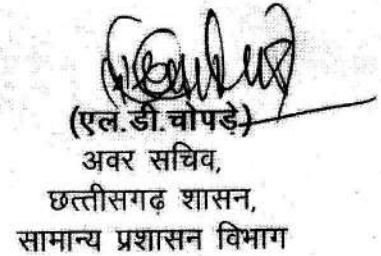 (एल.डी.चोपड़े)
अवर सचिव,
छत्तीसगढ़ शासन,
सामान्य प्रशासन विभाग